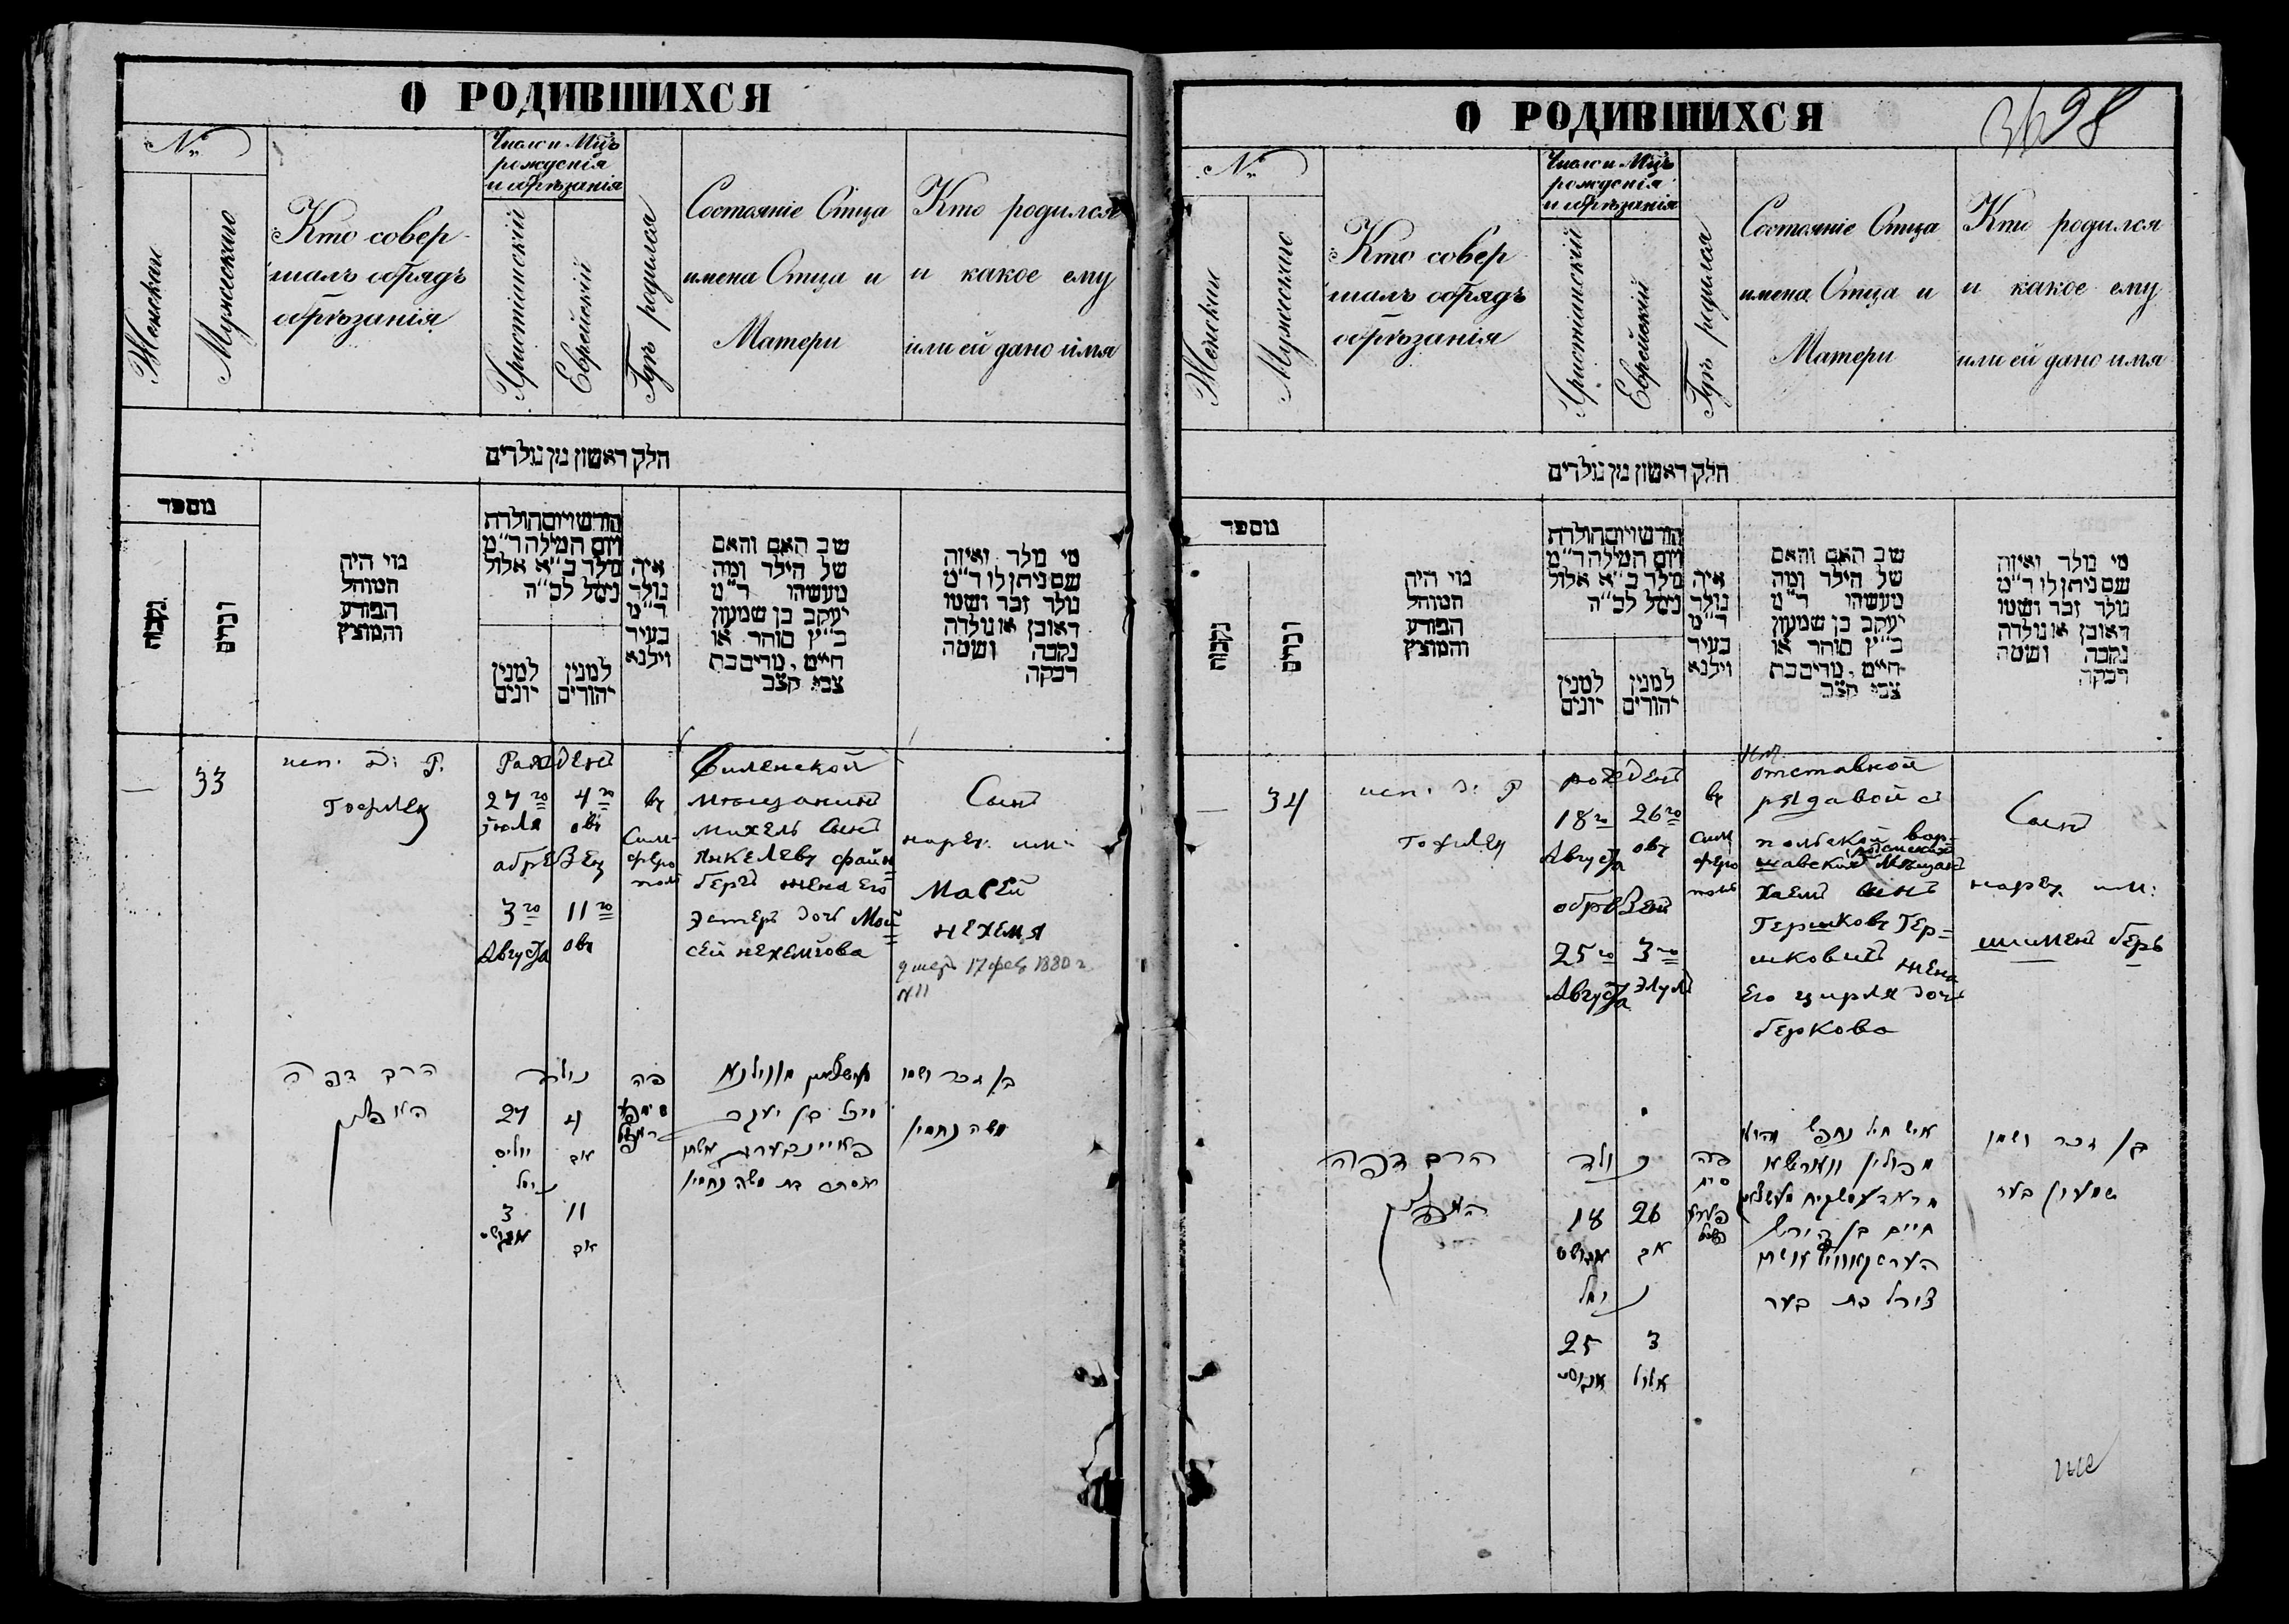 О РОДИВШИХСЯ
№
Женскаго
Мужескаго
Кто совер-
шалъ обрядъ
обрѣзанія
Число и Мцъ
рожденія
и обрѣзанія
Христіанскій
Еврейскій
Гдѣ родился
Состояніе Отца
имена Отца и
Матери
Кто родился
и какое ему
или ей дано имя
חלק ראשון מן נולדים
מספר
נקבות
זכרים
מי היה
המוהל
הפורע
והמוצץ
חודש ויום הולדת
ויום המילה ר״מ
נולד כ״א אלול
נימל לכ״ה
למנין
יונים
למנין
יהודים
איה
נולד
ר״מ
בעיר
וילנא
שב האם והאם
של הילד ומה
מעשהו ר״מ
יעקב בן שמעון
כ״ץ סוחר או
חייט, מרים בת
צבי קצב
מי נולד ואיזה
שם ניתן לו ר״מ
נולד זכר ושמו
ראובן או נולדה
נקבה ושמה
רבקה
— 33
исп. д. Р.
Гофмен
Рожденъ
27го 4го
Іюля овъ
обрѣзенъ
3го 11го
Августа овъ
въ
Сим-
феро
поль
Виленской
мещанинъ
михель сынъ
Янкелевъ файн
бергъ жена его
Эстеръ дочь Мой
сей нехемiова
Сынъ
нареч. им:
Мосей
нехемя
умеръ 17 фев 1880 г.
№ 11
הרב דפה
האפמן
נולד
27 4
יוליס אב
נימל
3 11
אויגוסט אב
פה
מיכל בן יעקב
אסתר בת משה נחמין
בן זכר ושמו
משה נחמין
О РОДИВШИХСЯ
98
№
Женскаго
Мужескаго
Кто совер
шалъ обрядъ
обрѣзанія
Число и Мцъ
рожденія
и обрѣзанія
Христіанскій
Еврейскій
Гдѣ родился
Состояніе Отца
имена Отца и
Матери
Кто родился
и какое ему
или ей дано имя
חלק ראשון מן נולדים
מספר
נקבות
זכרים
מי היה
המוהל
הפורע
והמוצץ
חודש ויום הולדת
ויום המילה ר״מ
נולד כ״א אלול
נימל לכ״ה
למנין
יונים
למנין
יהודים
איה
נולד
ר״מ
בעיר
וילנא
שב האם והאם
של הילד ומה
מעשהו ר״מ
יעקב בן שמעון
כ״ץ סוחר או
חייט, מרים בת
צבי קצב
מי נולד ואיזה
שם ניתן לו ר״מ
נולד זכר ושמו
ראובן או נולדה
נקבה ושמה
רבקה
— 34
исп. д. Р
Гофмен
рожденъ
18го 26го
Августа овъ
обрѣзенъ
25го 3го
Августа Элулъ
въ
Сим
феро
поль
отставной
рядавой
польской вар-
шавской мещан
Хаемъ сынъ
Гершковъ Гер=
шковитъ жена
Его цирля дочь
беркова
Сынъ
нареч. им:
шимен беръ
הרב דפה
האפמן
נולד
18 26
אויגוסט אב
נימל
25 3
אויגוסט אלול
פה
סים
איש חיל
מפולין ווארשא
חיים בן הירש
צירל בת בער
בן זכר ושמו
שמעון בער